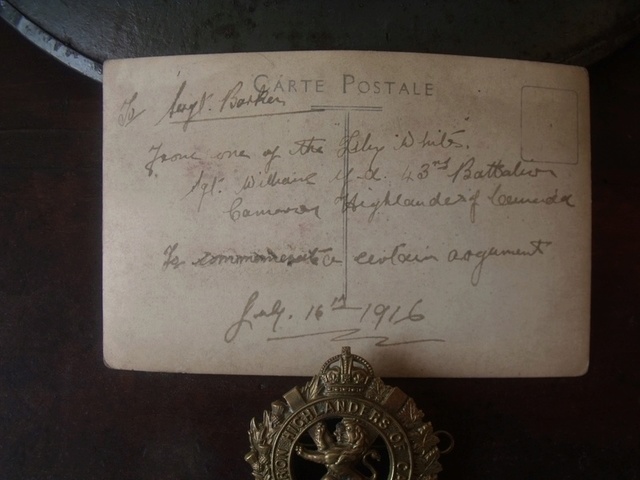 CARTE POSTALE
To Sergt. Barker
From one of the Lily Whites.
Sgt. William 43rd Battalion
Cameron Highlanders of Canada
To commemorate a certain argument
July. 16th 1916
HIGHLANDERS OF